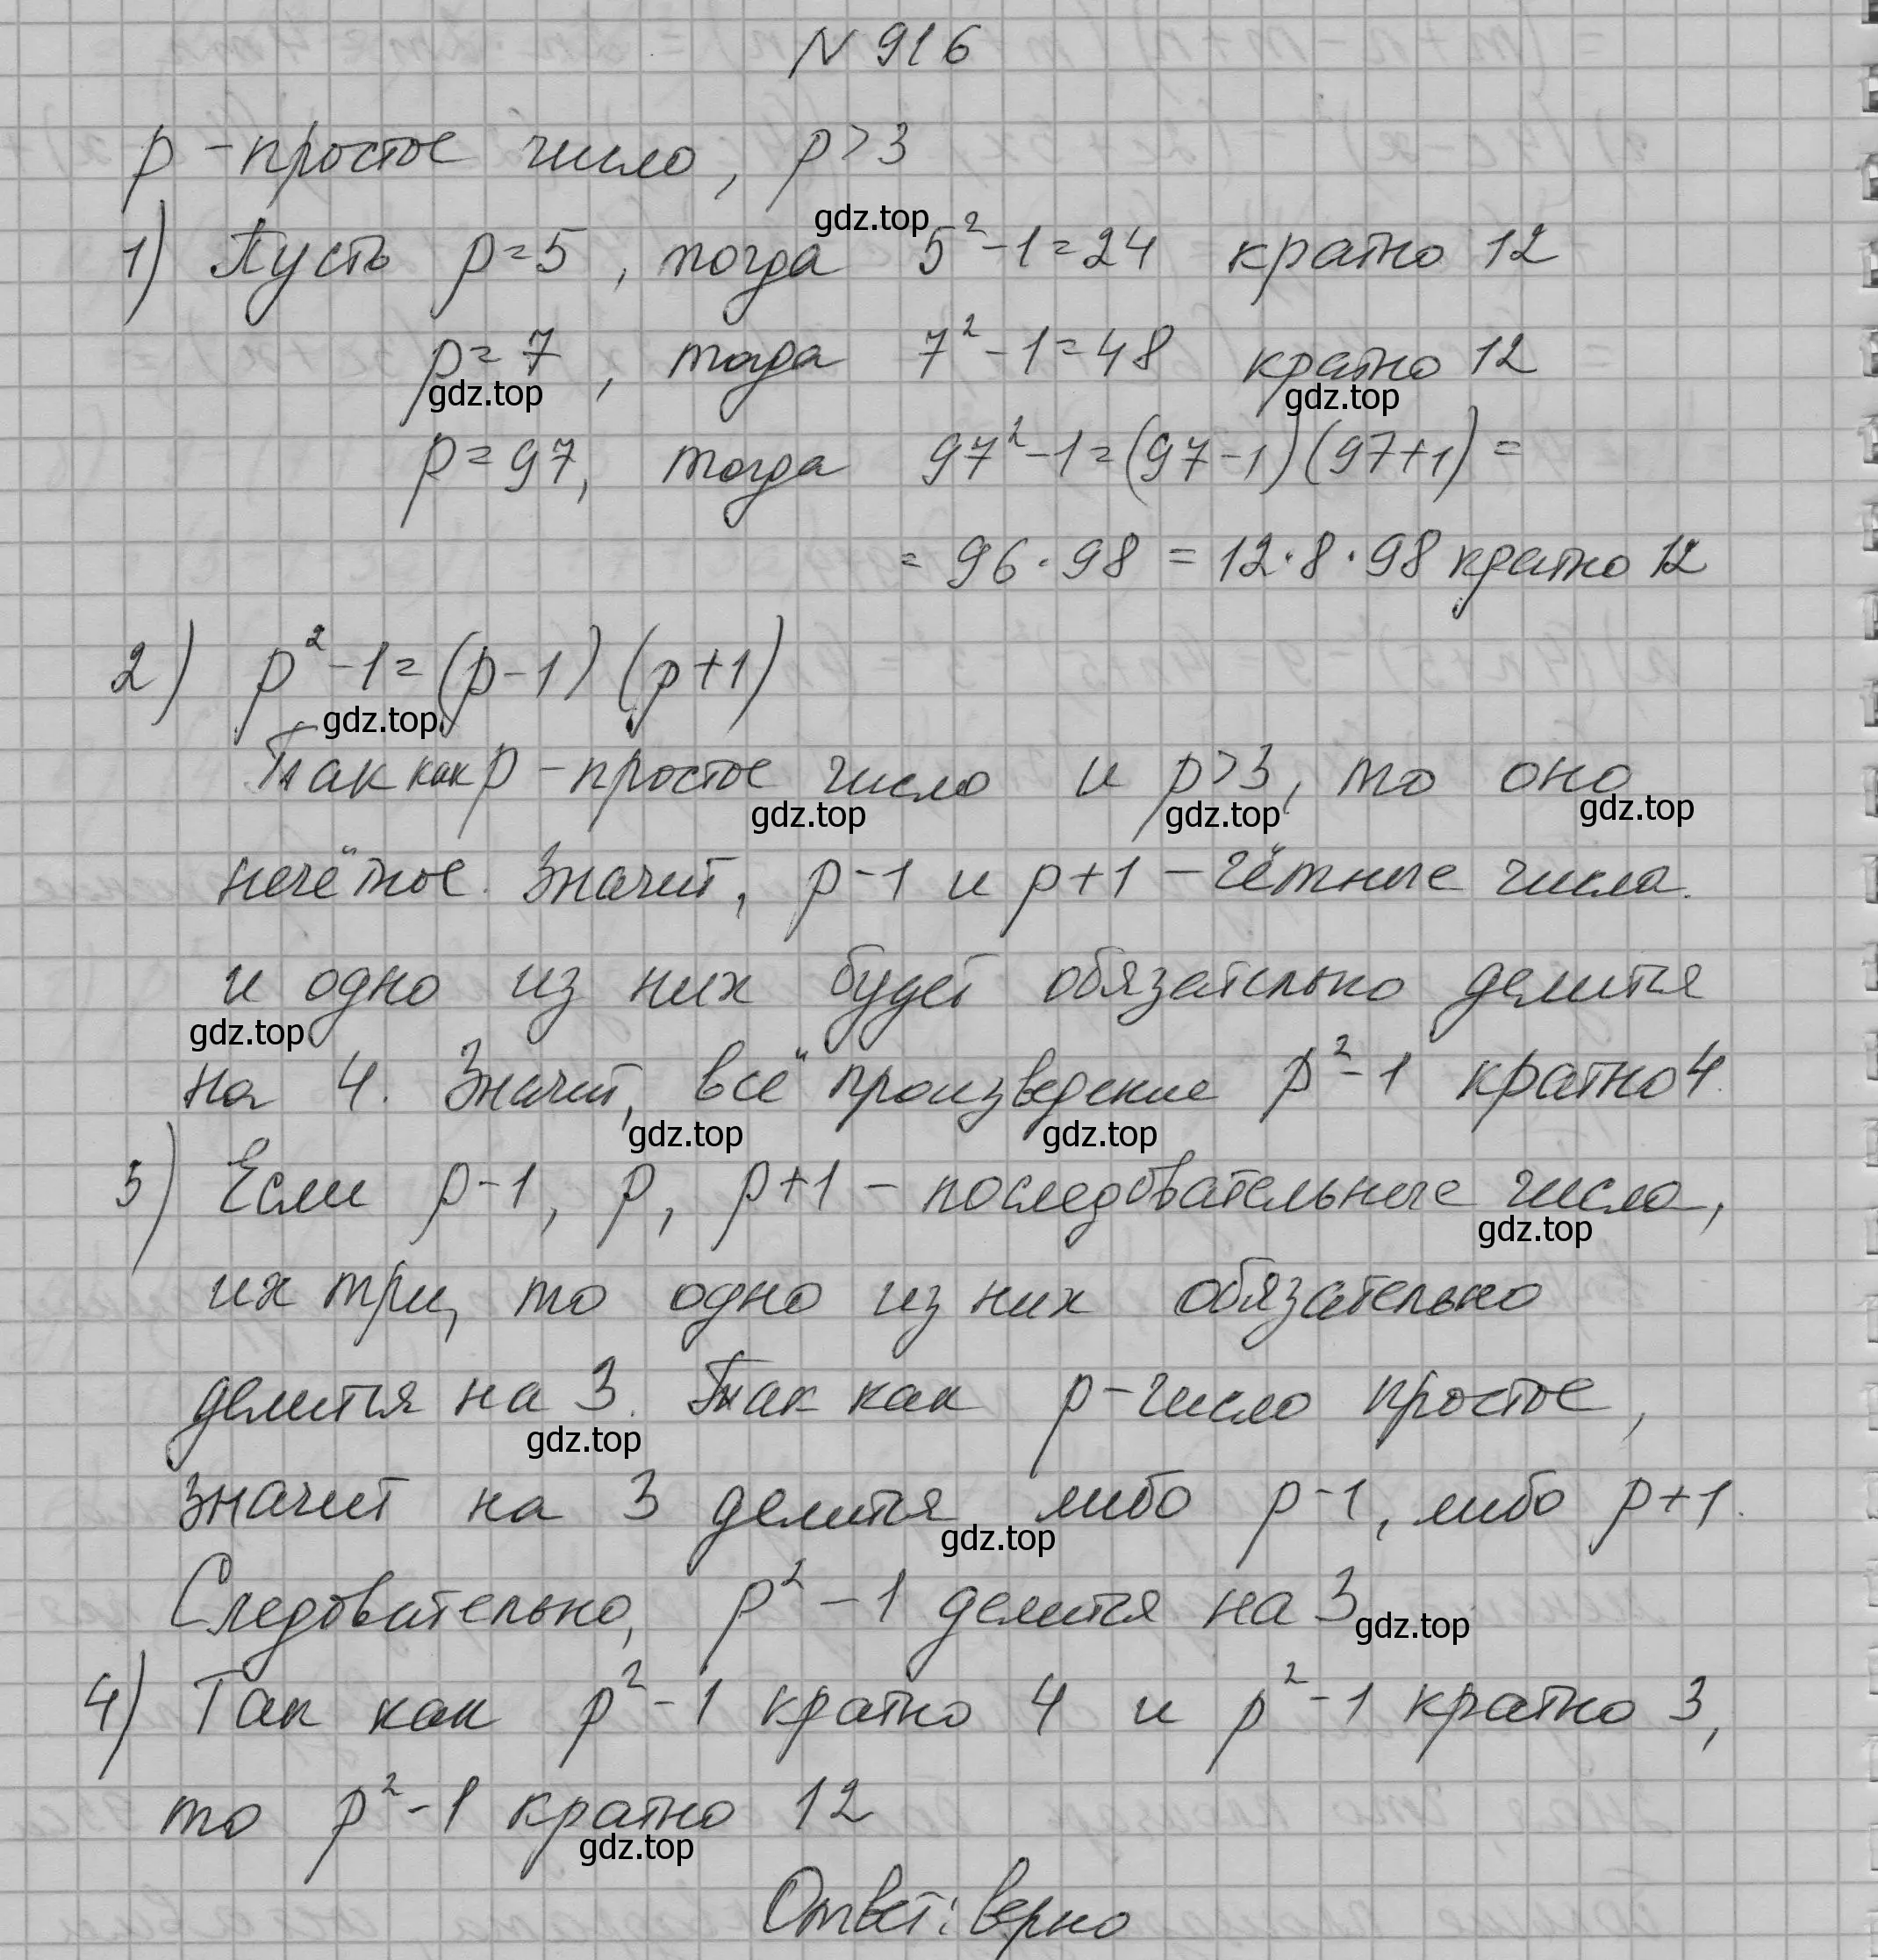 N 916
p - простое число, p > 3
1) Пусть p = 5, тогда 5² - 1 = 24 кратно 12
gdz.top
p = 7, тогда 7² - 1 = 48 кратно 12
gdz.top gdz.top
p = 97, тогда 97² - 1 = (97 - 1) (97 + 1) =
= 96 · 98 = 12 · 8 · 98 кратно 12
2) p² - 1 = (p - 1) (p + 1)
gdz.top
Так как p - простое число и p > 3, то оно
gdz.top gdz.top gdz.top
нечётное. Значит, p - 1 и p + 1 - чётные числа.
и одно из них будет обязательно делится
gdz.top
на 4. Значит, всё произведение p² - 1 кратно 4.
gdz.top gdz.top
3) Если p - 1, p, p + 1 - последовательные числа,
gdz.top
их три, то одно из них обязательно
делится на 3. Так как p - число простое,
gdz.top
значит на 3 делится либо p - 1, либо p + 1.
gdz.top
Следовательно, p² - 1 делится на 3
gdz.top
4) Так как p² - 1 кратно 4 и p² - 1 кратно 3,
то p² - 1 кратно 12
gdz.top
Ответ: верно